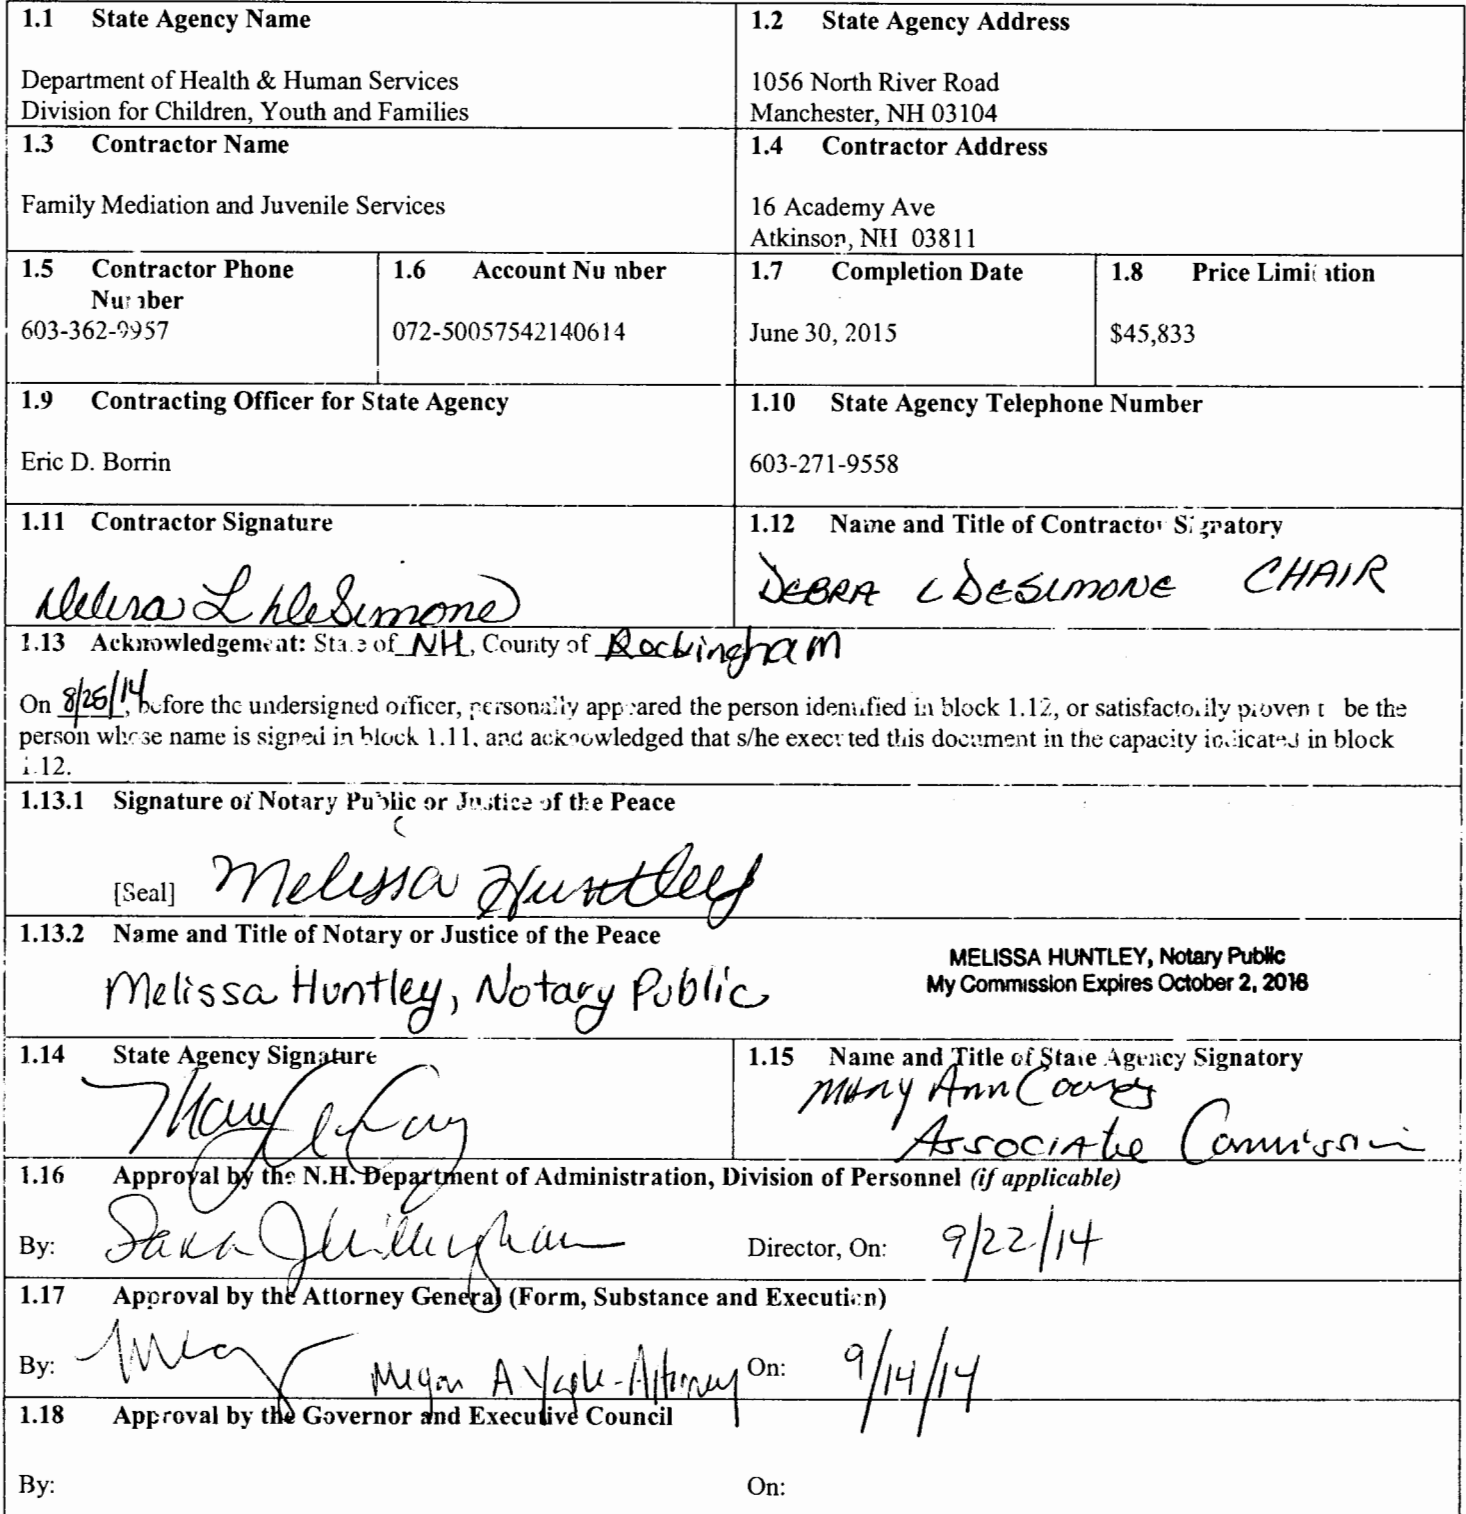 1.1 State Agency Name
Department of Health & Human Services
Division for Children, Youth and Families
1.2 State Agency Address
1056 North River Road
Manchester, NH 03104
1.3 Contractor Name
Family Mediation and Juvenile Services
1.4 Contractor Address
16 Academy Ave
Atkinson, NH 03811
1.5 Contractor Phone
Number
603-362-9957
1.6 Account Number
072-50057542140614
1.7 Completion Date
June 30, 2015
1.8 Price Limitation
$45,833
1.9 Contracting Officer for State Agency
Eric D. Borrin
1.10 State Agency Telephone Number
603-271-9558
1.11 Contractor Signature
Debra L DeSimone
1.12 Name and Title of Contractor Signatory
DEBRA L DESIMONE CHAIR
1.13 Acknowledgement: State of NH, County of Rockingham
On 8/25/14, before the undersigned officer, personally appeared the person identified in block 1.12, or satisfactorily proven t be the
person whose name is signed in block 1.11, and acknowledged that s/he executed this document in the capacity indicated in block
1.12.
1.13.1 Signature of Notary Public or Justice of the Peace
[Seal] Melissa Huntley
1.13.2 Name and Title of Notary or Justice of the Peace
Melissa Huntley, Notary Public
MELISSA HUNTLEY, Notary Public
My Commission Expires October 2, 2018
1.14 State Agency Signature
1.15 Name and Title of State Agency Signatory
Mary Ann Cooney
Associate Commission
1.16 Approval by the N.H. Department of Administration, Division of Personnel (if applicable)
By: Sara Director, On: 9/22/14
1.17 Approval by the Attorney General (Form, Substance and Execution)
By: Megan A Yaple - Attorney On: 9/14/14
1.18 Approval by the Governor and Executive Council
By: On: